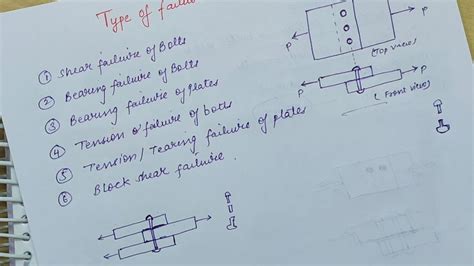 Type of failu
① Shear failure of Bolts
② Bearing failure of Bolts
③ Bearing failure of Plates
④ Tension failure of bolts
⑤ Tension/Tearing failure of plates
⑥ Block shear failure.
P
P
(Top view)
P
P
(Front view)